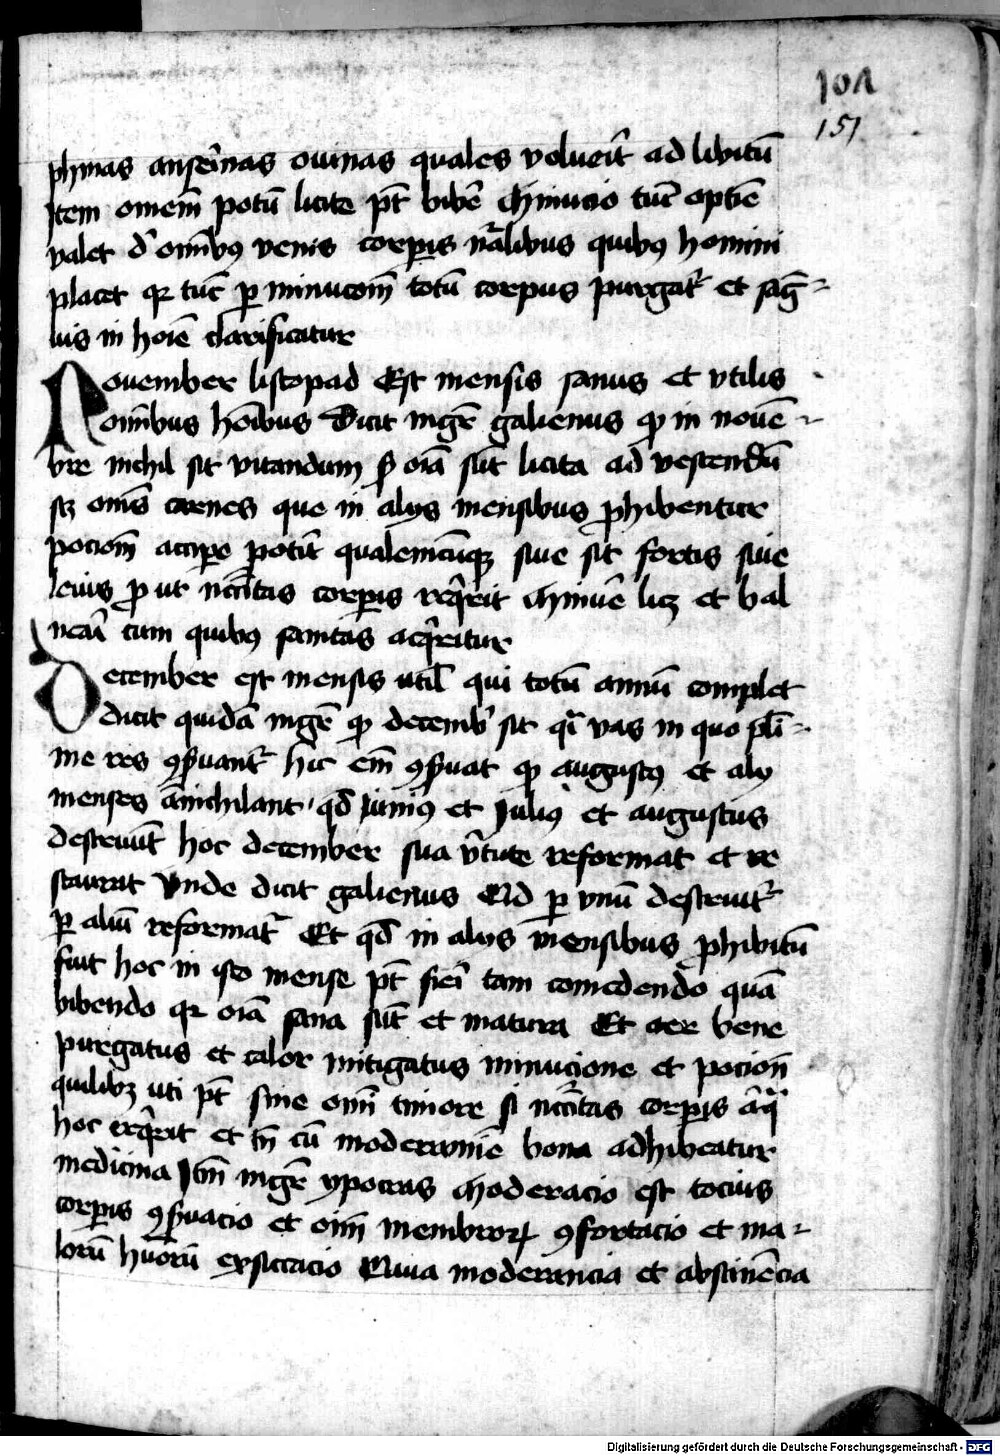 101
151
phinas anserinas ouinas quales volueīt ad libitū
Item omēm potū licite pt̄ bibē Minucio tūc optīe
valet d' omībꝯ venis corꝑis nr̄alibus quibꝯ homini
placet qꝛ tūc ꝑ minucōm̄ totū corpus purgatꝛ̄ et sāg=
uis in hoīe clarificatur
Nouember listopad Est mensis sanus et vtilis
omībus hoībus Dicit mgr̄ galienus ꝙ in nouē=
bre nichil sit vitandum sꝫ oīa sūt licita ad vescendū
sꝫ om̄s carnes que in alys mensibus ꝓhibentur
pocionē accipe potīt qualemcūqꝫ siue sit fortis siue
leuis ꝓ ut nccītas corꝑis reqꝛ̄it Minuē licꝫ et bal
neari cum quibꝯ sanitas acqꝛ̄itur
December est mensis util̄ qui totū annū complet
dicit quidā mgr̄ ꝙ decemb̄ sit qī vas in quo pl̄i=
me res ꝯẜuantꝛ̄ hic em̄ ꝯẜuat ꝙ augustꝯ et aly
menses ānichilant qd̄ Iunius et Julius et augustus
destruūt hoc december sua v̄tute reformat et re
staurat Vnde dicit galienus Qd ꝑ vnū destruitꝛ̄
ꝑ aliū reformatꝛ̄ Et qd̄ in alys mensibus ꝓhibitū
fuit hoc in isto mense pt̄ fieī tam comedendo quā
bibendo qꝛ oīa sana sūt et matura Et aer bene
purgatus et calor mitigatus minucione et pocioñ
quilibꝫ uti pt̄ sine omī timore si nccītas corꝑis
hoc reqꝛ̄it et tn̄ cū moderamīe bona adhibeatur
medicina Itm̄ mgr̄ ypocras Moderacio est tocius
corꝑis ꝯẜuacio et oīm membroꝝ ꝯfortacio et ma=
lorū hūorū exsiccacio moderancia et abstinēcia
Digitalisierung gefördert durch die Deutsche Forschungsgemeinschaft - DFG